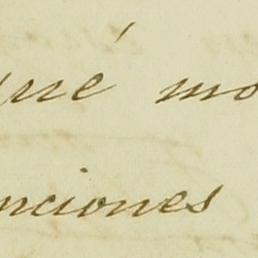 qué mo
nciones